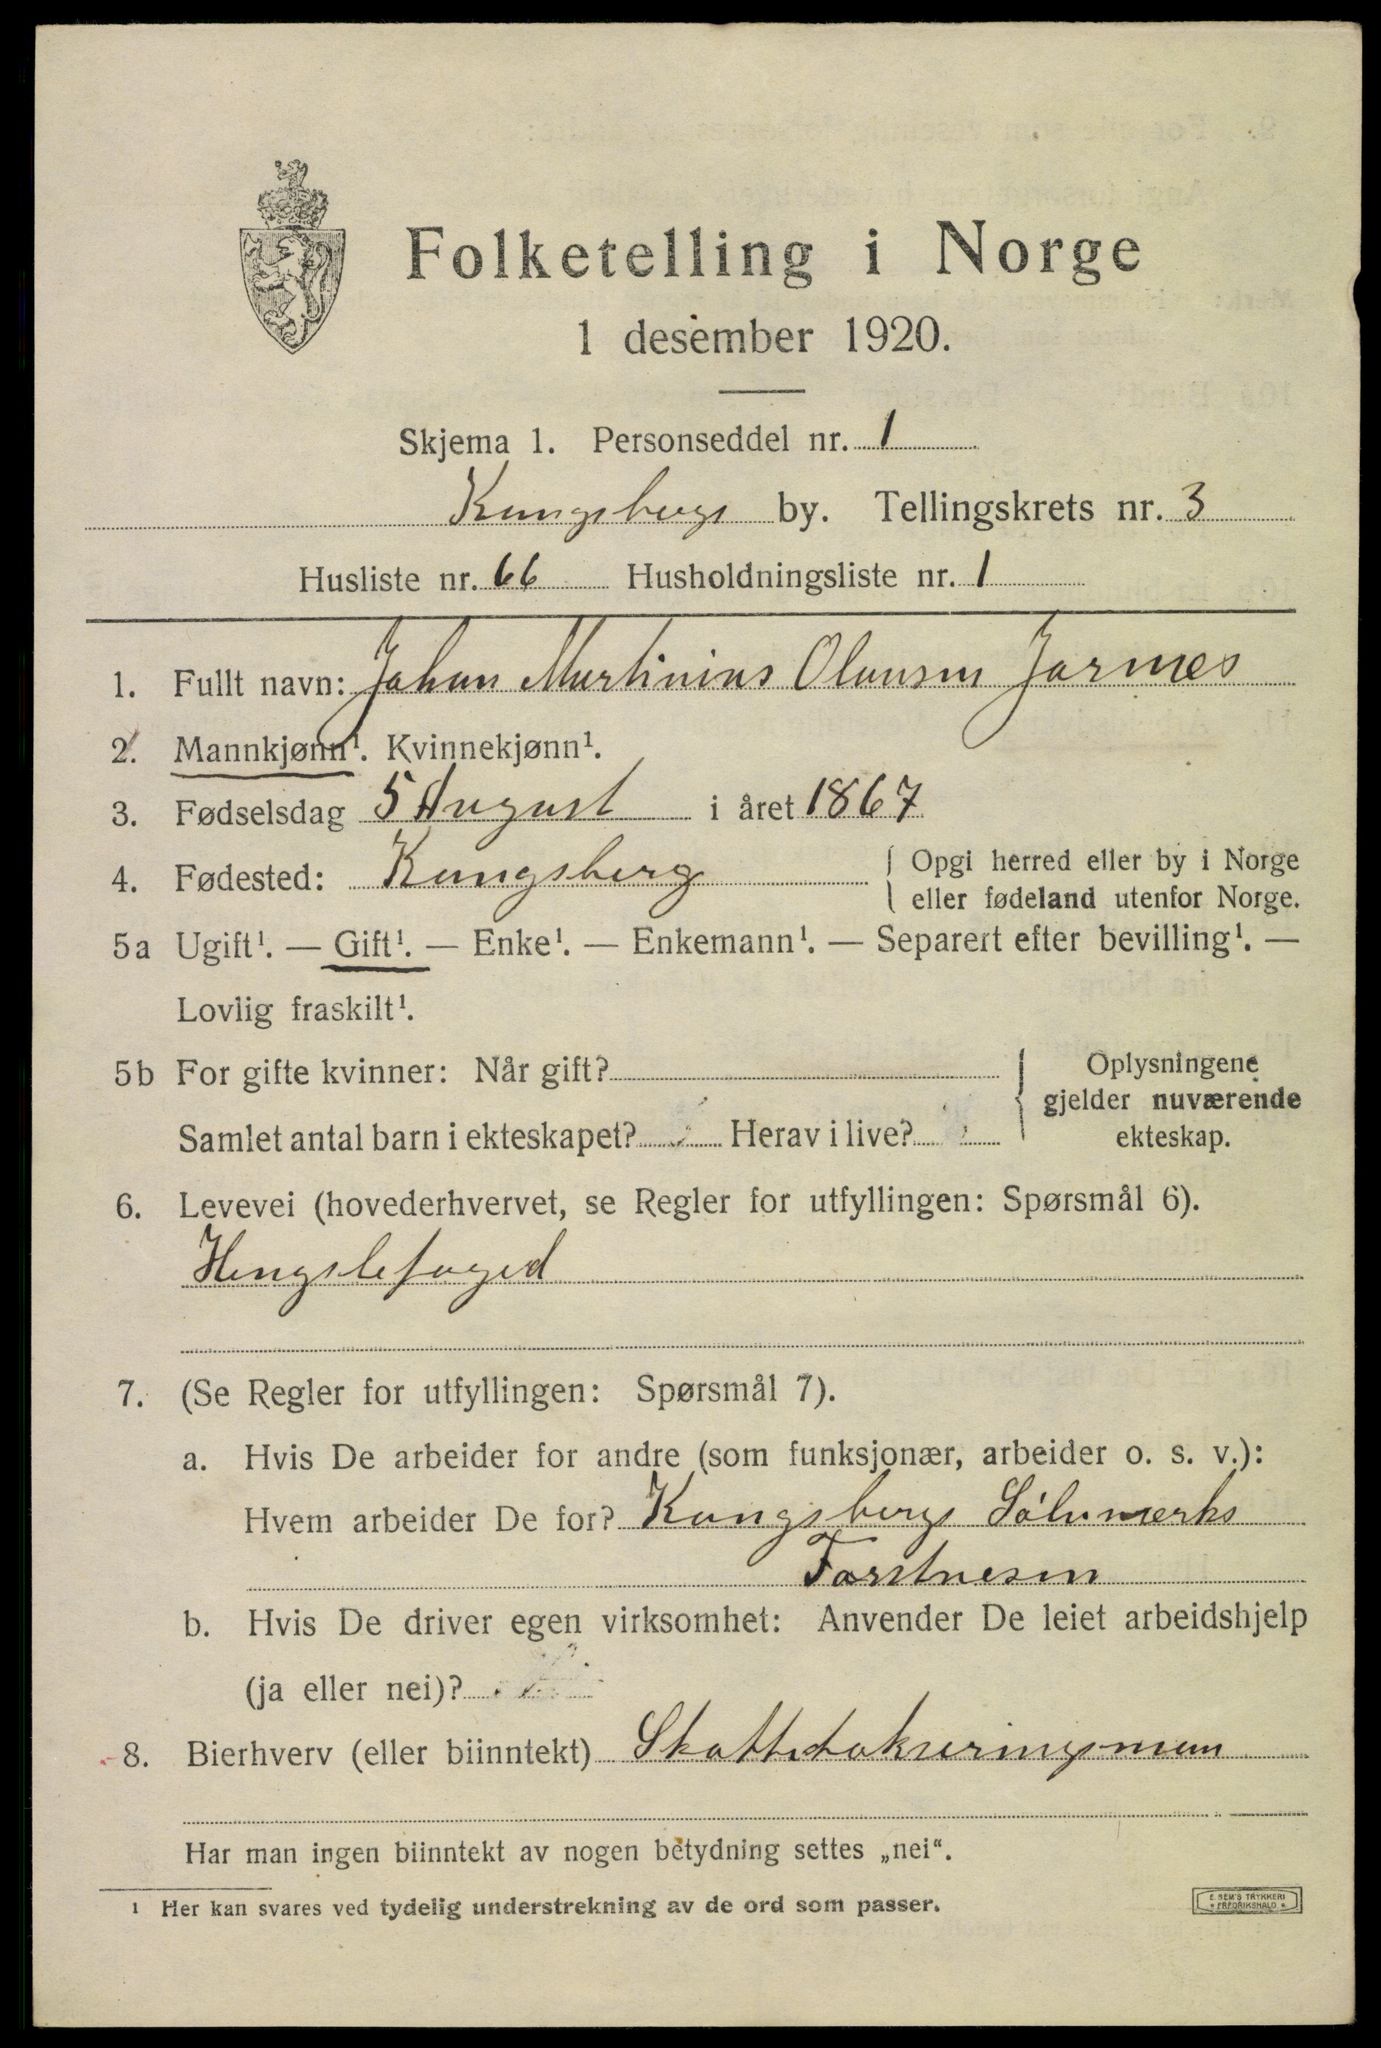 Folketelling i Norge
1 desember 1920.
Skjema 1. Personseddel nr. 1
Kongsbergs by. Tellingskrets nr. 3
Husliste nr. 66 Husholdningsliste nr. 1
1. Fullt navn: Johan Martinius Olausen Jarnes
2. Mannkjønn¹. Kvinnekjønn¹.
3. Fødselsdag 5 August i året 1867
4. Fødested: Kongsberg { Opgi herred eller by i Norge
eller fødeland utenfor Norge.
5a Ugift¹. — Gift¹. — Enke¹. — Enkemann¹. — Separert efter bevilling¹. —
Lovlig fraskilt¹.
5b For gifte kvinner: Når gift? { Oplysningene
gjelder nuværende
Samlet antal barn i ekteskapet? Herav i live? ekteskap.
6. Levevei (hovederhvervet, se Regler for utfyllingen: Spørsmål 6).
Hengslefoged
7. (Se Regler for utfyllingen: Spørsmål 7).
a. Hvis De arbeider for andre (som funksjonær, arbeider o. s. v.):
Hvem arbeider De for? Kongsbergs Sølvværks
Forstvesen
b. Hvis De driver egen virksomhet: Anvender De leiet arbeidshjelp
(ja eller nei)?
8. Bierhverv (eller biinntekt) Skattetakseringsman
Har man ingen biinntekt av nogen betydning settes „nei“.
¹ Her kan svares ved tydelig understrekning av de ord som passer.
E. SEM'S TRYKKERI
* FREDRIKSHALD *